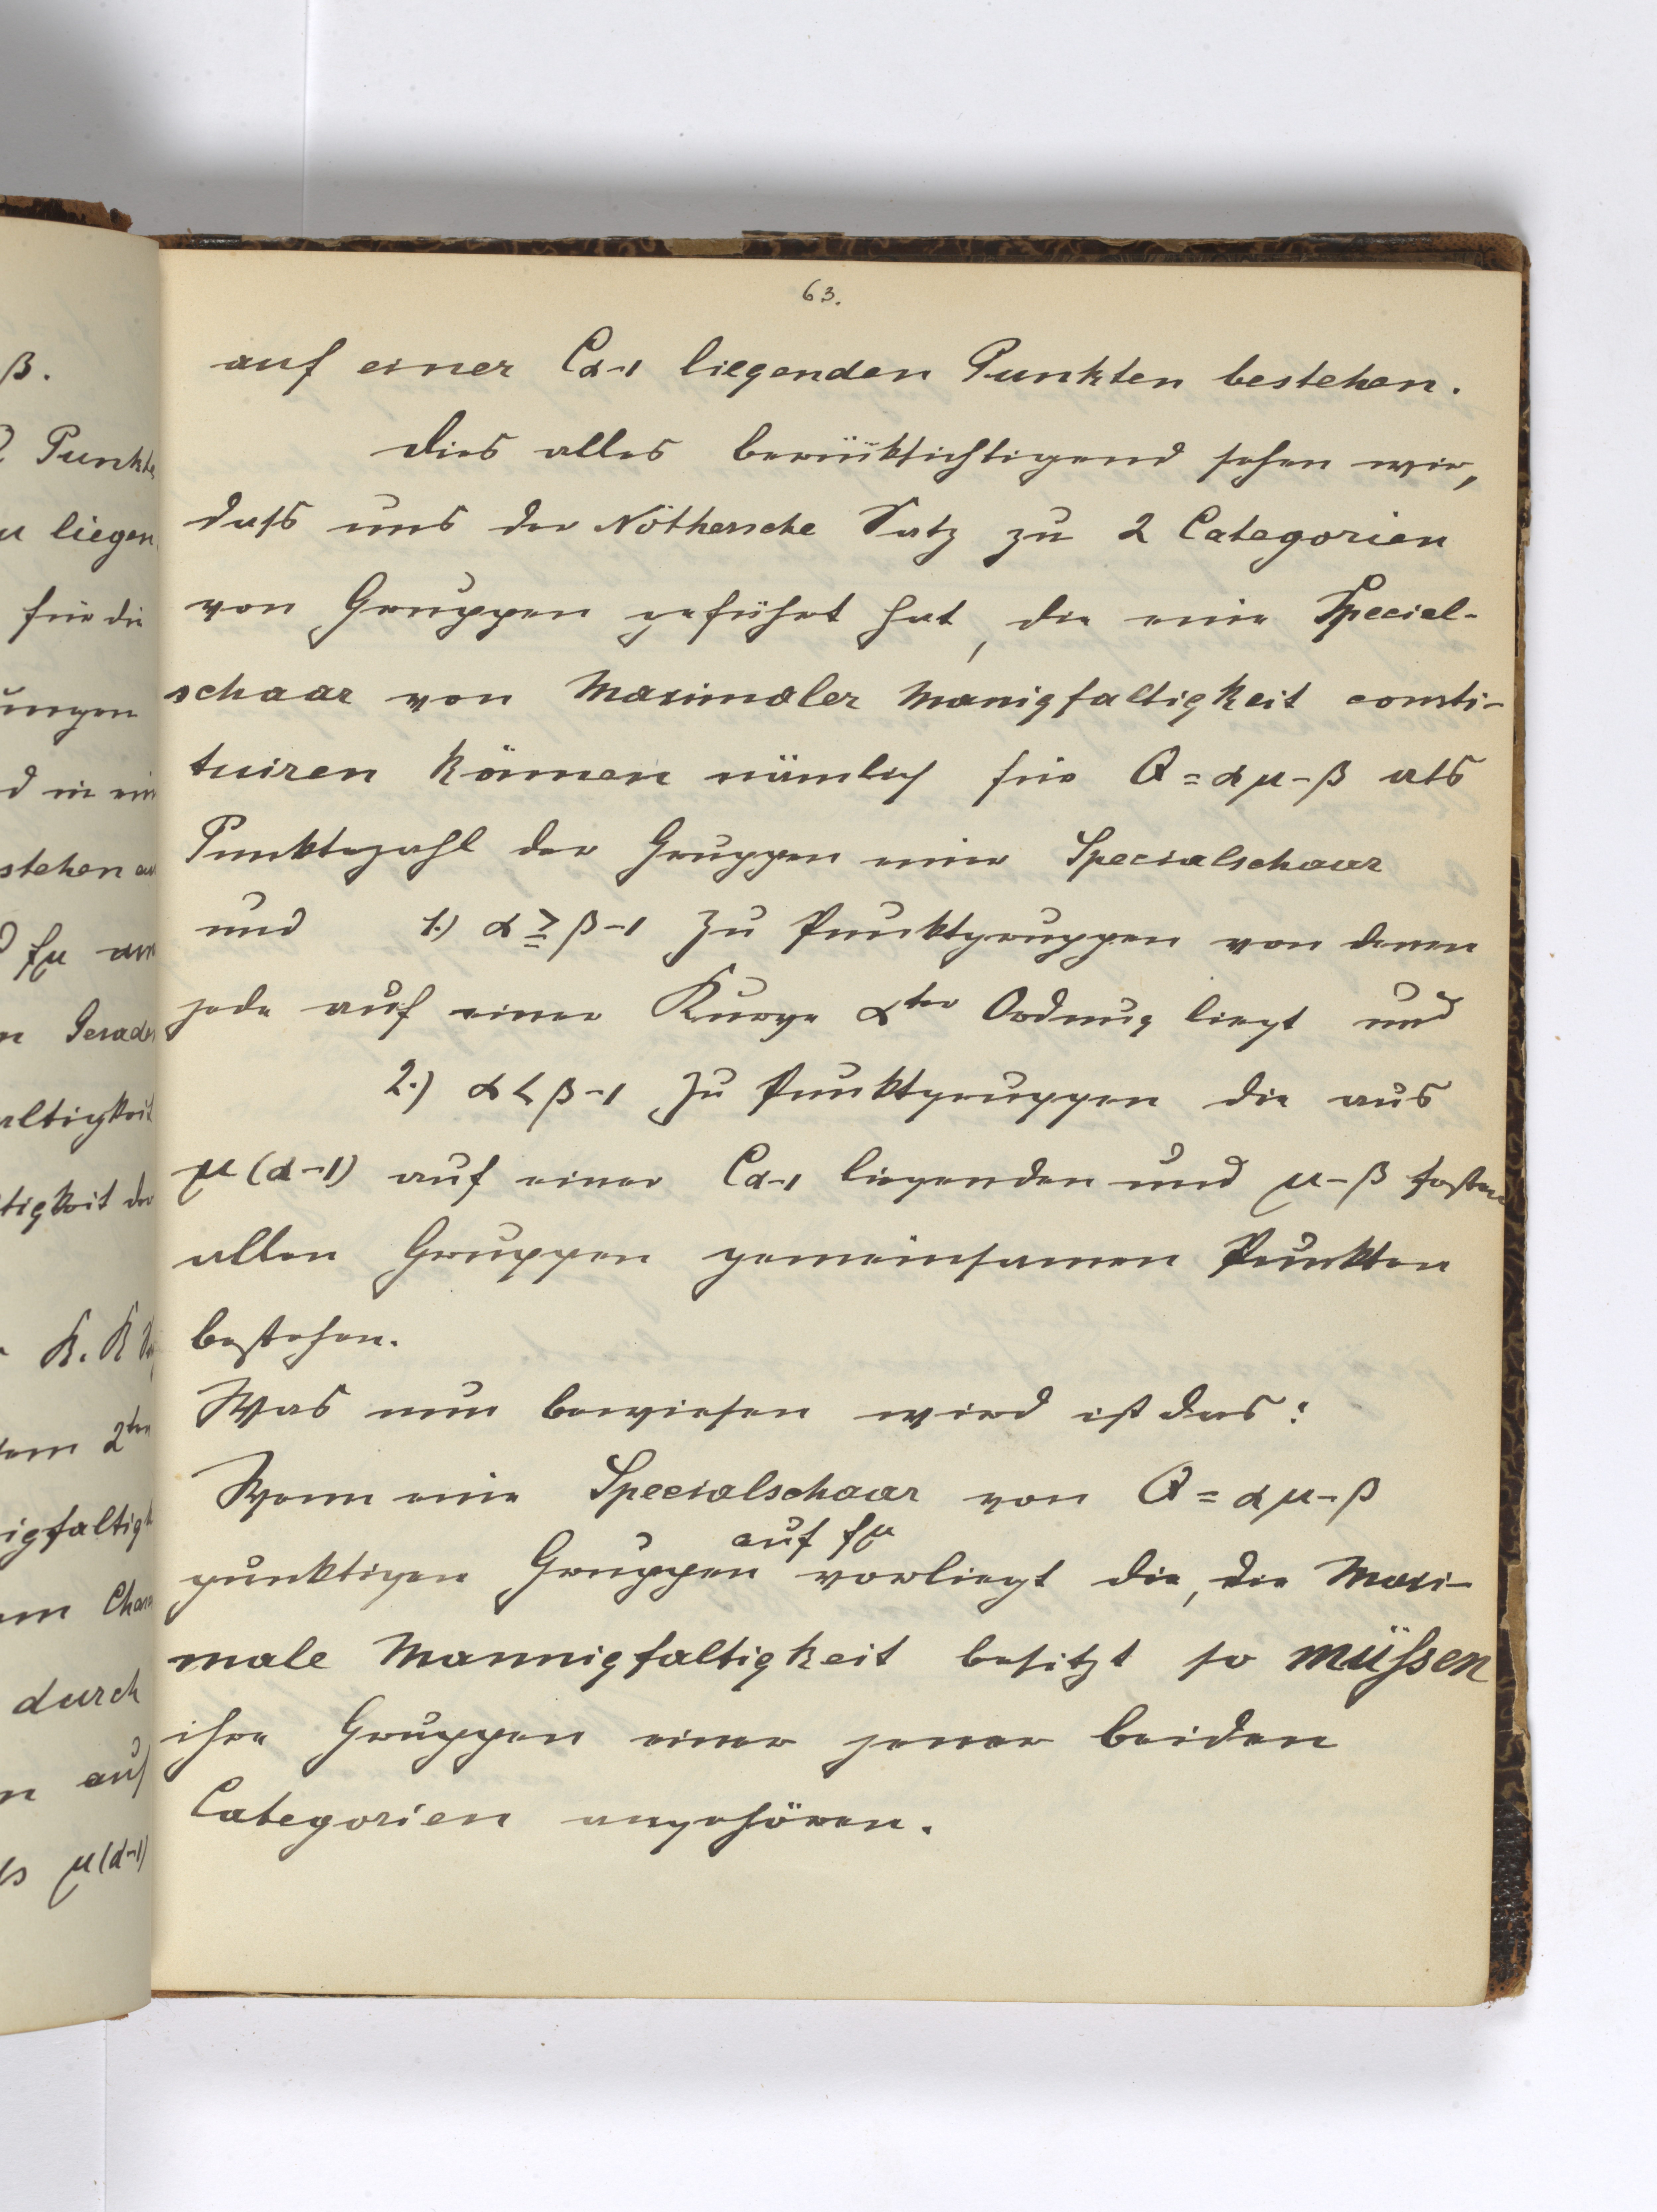 63.
auf einer Cα-1 liegenden Punkten bestehen.
Dies alles berüktichtigend sehen wir,
dass uns der Nöthersche Satz zu 2 Categorien
von Gruppen geführt hat, die eine Special-
schaar von Maximaler Manigfaltigkeit consti-
tuiren können nämlich für Q = αμ-β als
Punktezahl der Gruppen einer Specialschaar
und 1.) α ≧ β-1 zu Punktgruppen von denen
jede auf einer Kurve αter Ordnung liegt und
2.) α < β-1 zu Punktgruppen die aus
μ(α-1) auf einer Cα-1 liegenden und μ-β festen
allen Gruppen gemeinsamen Punkten
bestehen.
Was nun bewiesen wird ist das:
Wenn eine Specialschaar von Q = αμ-β
auf fμ
punktigen Gruppen vorliegt die, die Maxi-
male Mannigfaltigkeit besitzt so müssen
ihre Gruppen einer jener beiden
Categorien angehören.
β.
Punkte
liegen
für die
ungen
d in ein
stehen
fμ
Gerade
altigkeit
tigkeit der
K. K
2ten
igfaltigk
durch
auf
μ(α-1)